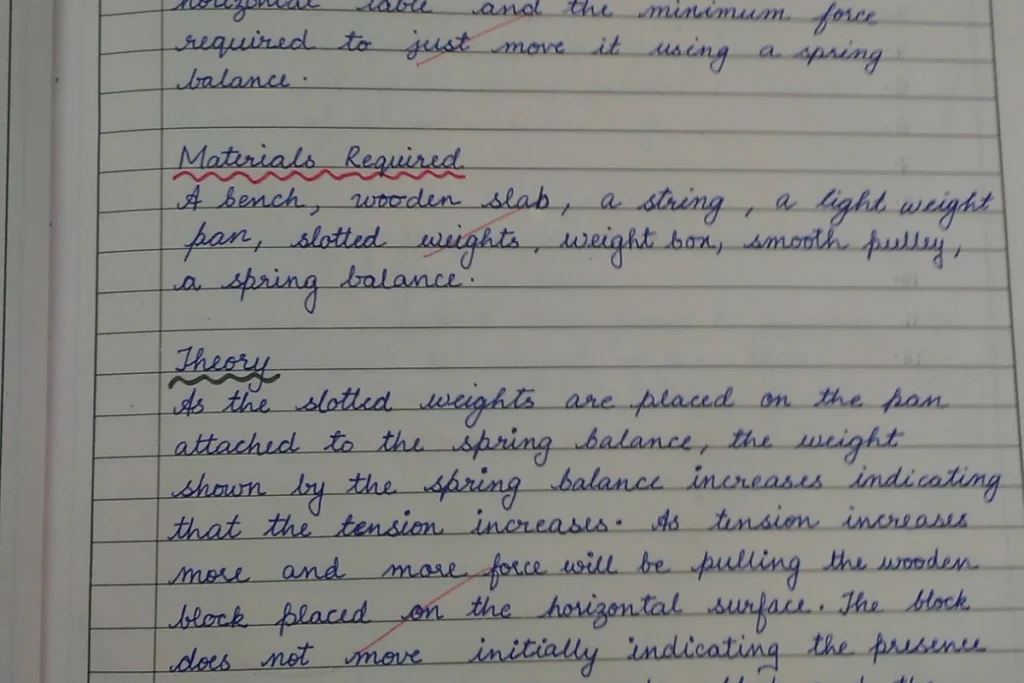 horizontal table and the minimum force
required to just move it using a spring
balance.
Materials Required
A bench, wooden slab, a string, a light weight
pan, slotted weights, weight box, smooth pulley,
a spring balance.
Theory
As the slotted weights are placed on the pan
attached to the spring balance, the weight
shown by the spring balance increases indicating
that the tension increases. As tension increases
more and more force will be pulling the wooden
block placed on the horizontal surface. The block
does not move initially indicating the presence